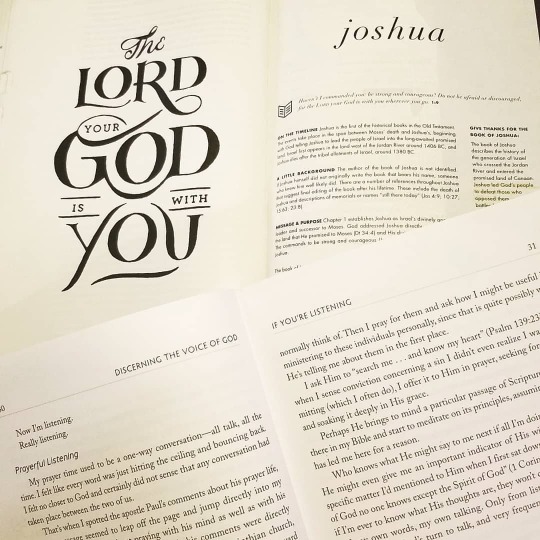 The
LORD
YOUR
GOD
IS WITH
YOU
joshua
Haven't I commanded you: be strong and courageous? Do not be afraid or discouraged,
for the LORD your God is with you wherever you go. 1:9
ON THE TIMELINE Joshua is the first of the historical books in the Old Testament.
events take place in the span between Moses' death and Joshua's, beginning
God telling Joshua to lead the people of Israel into the long-awaited promised
Israel first appears in the land west of the Jordan River around 1406 BC, and
Joshua dies after the tribal allotments of Israel, around 1380 BC.
A LITTLE BACKGROUND The author of the book of Joshua is not identified.
If Joshua himself did not originally write the book that bears his name, someone
who knew him well likely did. There are a number of references throughout Joshua
that suggest final editing of the book after his lifetime. These include the death of
Joshua and descriptions of memorials or names "still there today" (Jos 4:9; 10:27;
MESSAGE & PURPOSE Chapter 1 establishes Joshua as Israel's divinely
leader and successor to Moses. God addressed Joshua directly
the land that He promised to Moses (Dt 34:4) and His
The commands to be strong and courageous
Joshua.
The book of
GIVE THANKS FOR THE
BOOK OF JOSHUA:
The book of Joshua
describes the history of
the generation of Israel
who crossed the Jordan
River and entered the
promised land of Canaan.
Joshua led God's people
to defeat those who
opposed them
DISCERNING THE VOICE OF GOD
Now I'm listening.
Really listening.
Prayerful Listening
My prayer time used to be a one-way conversation—all talk, all the
time. I felt like every word was just hitting the ceiling and bouncing back
I felt no closer to God and certainly did not sense that any conversation had
taken place between the two of us.
That's when I spotted the apostle Paul's comments about his prayer life,
seemed to leap off the page and jump directly into my
praying with his mind as well as with his
his comments were directly
church,
IF YOU'RE LISTENING
31
normally think of. Then I pray for them and ask how I might be useful
ministering to these individuals personally, since that is quite possibly
He's telling me about them in the first place.
I ask Him to "search me . . . and know my heart" (Psalm 139:23
when I sense conviction concerning a sin I didn't even realize I wa
mitting (which I often do), I offer it to Him in prayer, seeking for
and soaking it deeply in His grace.
Perhaps He brings to mind a particular passage of Scriptur
there in my Bible and start to meditate on its principles, assumin
has led me here for a reason.
Who knows what He might say to me next if all I'm doin
He might even give me an important indicator of His wi
specific matter I'd mentioned to Him when I first sat down
of God no one knows except the Spirit of God" (1 Corin
if I'm ever to know what His thoughts are, they won't
own words, my own talking. Only from list
turn to talk, and very freque